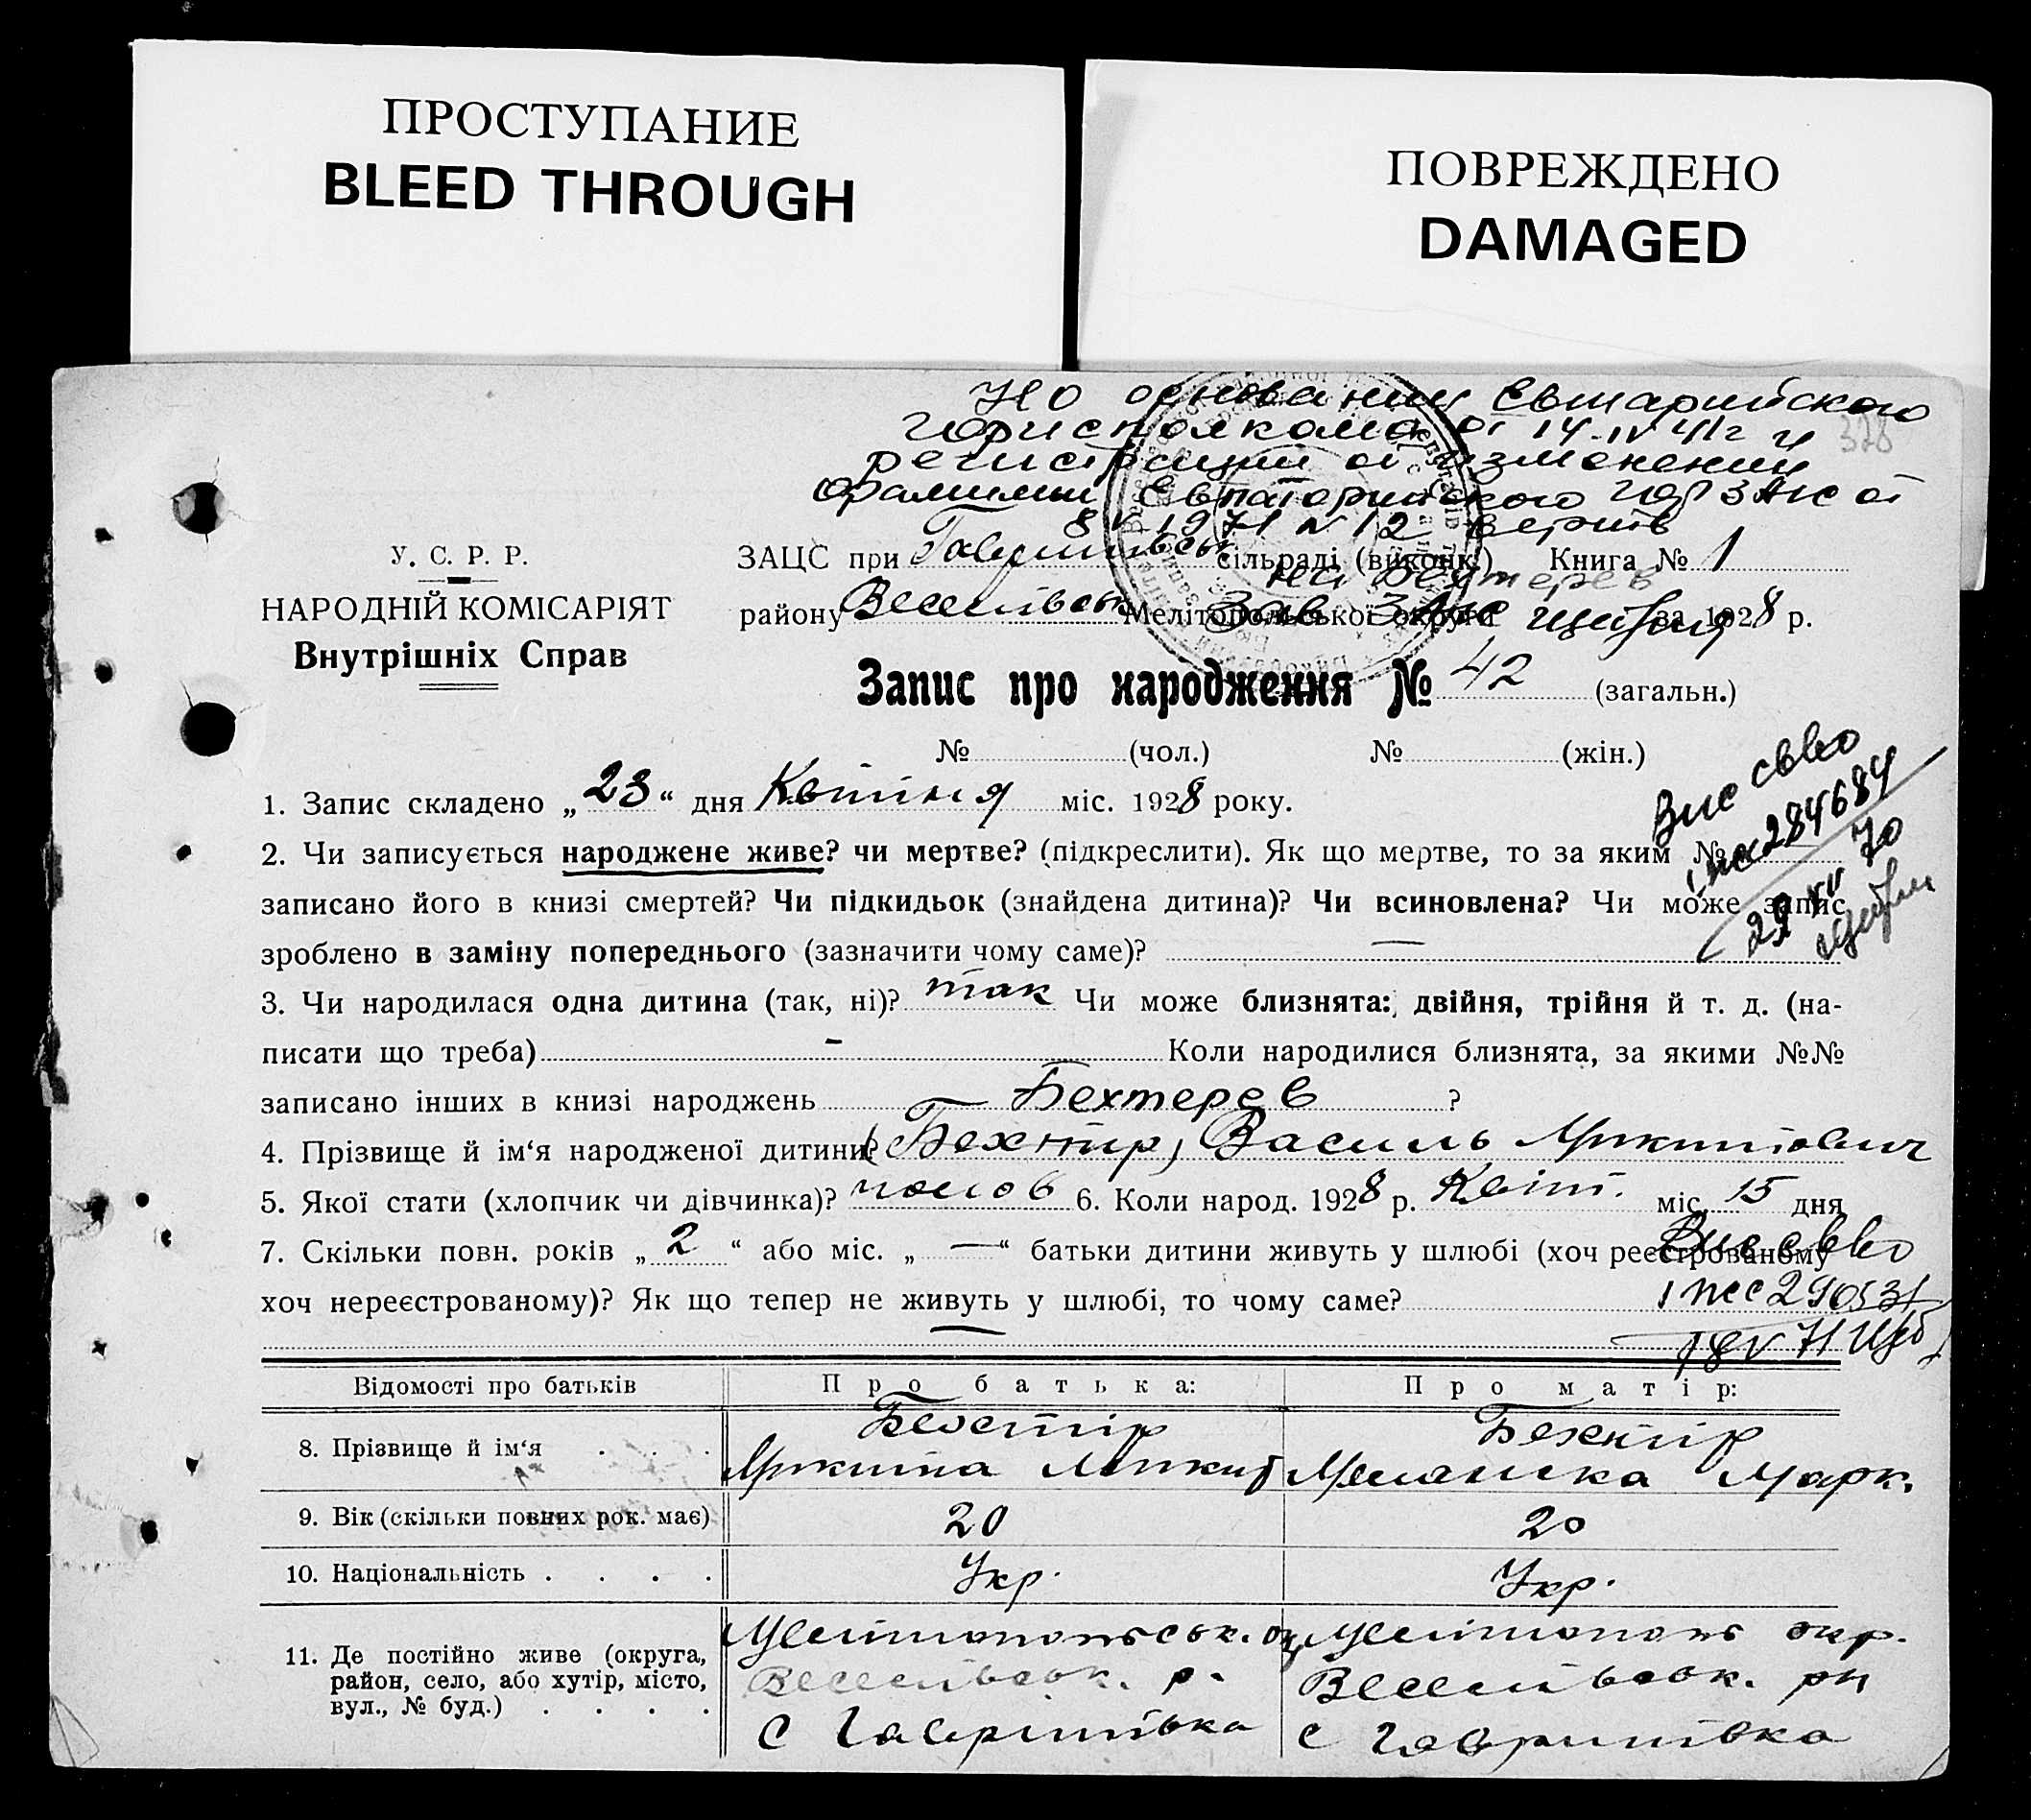 ПРОСТУПАНИЕ
BLEED THROUGH
ПОВРЕЖДЕНО
DAMAGED
На основании
горисполкома от 14.IV 71г и
регистрации об изменении
фамилии Евпаторийского горЗАГС от
8 V 1971 N 12
на Бехтерев
328
У. С. Р. Р.
НАРОДНІЙ КОМІСАРІЯТ
Внутрішніх Справ
ЗАЦС при сільраді (виконк.) Книга № 1
району Веселівськ Мелітопольської округи за 1928 р.
Запис про народження № 42 (загальн.)
№ (чол.) № (жін.)
1. Запис складено „23“ дня Квітня міс. 1928 року.
2. Чи записується народжене живе? чи мертве? (підкреслити). Як що мертве, то за яким №
записано його в книзі смертей? Чи підкидьок (знайдена дитина)? Чи всиновлена? Чи може запис
зроблено в заміну попереднього (зазначити чому саме)? —
3. Чи народилася одна дитина (так, ні)? так Чи може близнята: двійня, трійня й т. д. (на-
писати що треба) - Коли народилися близнята, за якими №№
записано інших в книзі народжень Бехтерев ?
4. Прізвище й ім‘я народженої дитини? (Бехтир) Василь Микитович
5. Якої стати (хлопчик чи дівчинка)? чолов 6. Коли народ. 1928 р. Квіт. міс. 15 дня
7. Скільки повн. років „2“ або міс. „—“ батьки дитини живуть у шлюбі (хоч реєстрованому
хоч нереєстрованому)? Як що тепер не живуть у шлюбі, то чому саме?
—
284684
29 XII 70
Відомості про батьків Про батька: Про матір:
8. Прізвище й ім‘я Бехтір Бехтір
Микита Меланка Марк.
9. Вік (скільки повних рок. має) 20 20
10. Національність Укр. Укр.
11. Де постійно живе (округа, Мелітопольськ. Мелітополь окр.
район, село, або хутір, місто, Веселівськ. р. Веселівськ. рн
вул., № буд.) с Гавришівка с Гавришівка